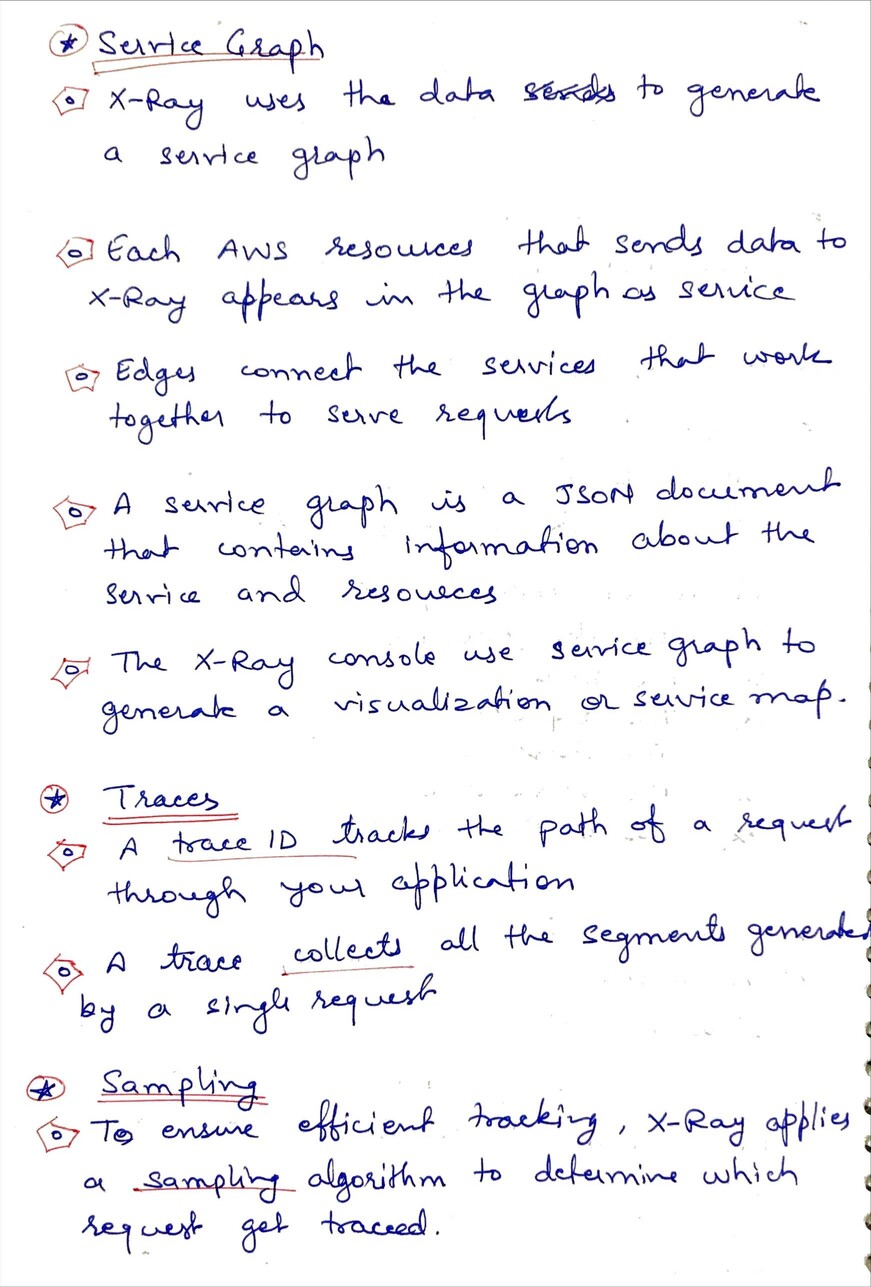 Service Graph
X-Ray uses the data to generate
a service graph
Each AWS resources that sends data to
X-Ray appears in the graph as service
Edges connect the services that work
together to serve requests
A service graph is a JSON document
that contains information about the
service and resources
The X-Ray console use service graph to
generate a visualization or service map.
Traces
A trace ID tracks the path of a request
through your application
A trace collects all the segments generated
by a single request
Sampling
To ensure efficient tracking, X-Ray applies
a sampling algorithm to determine which
request get traceed.